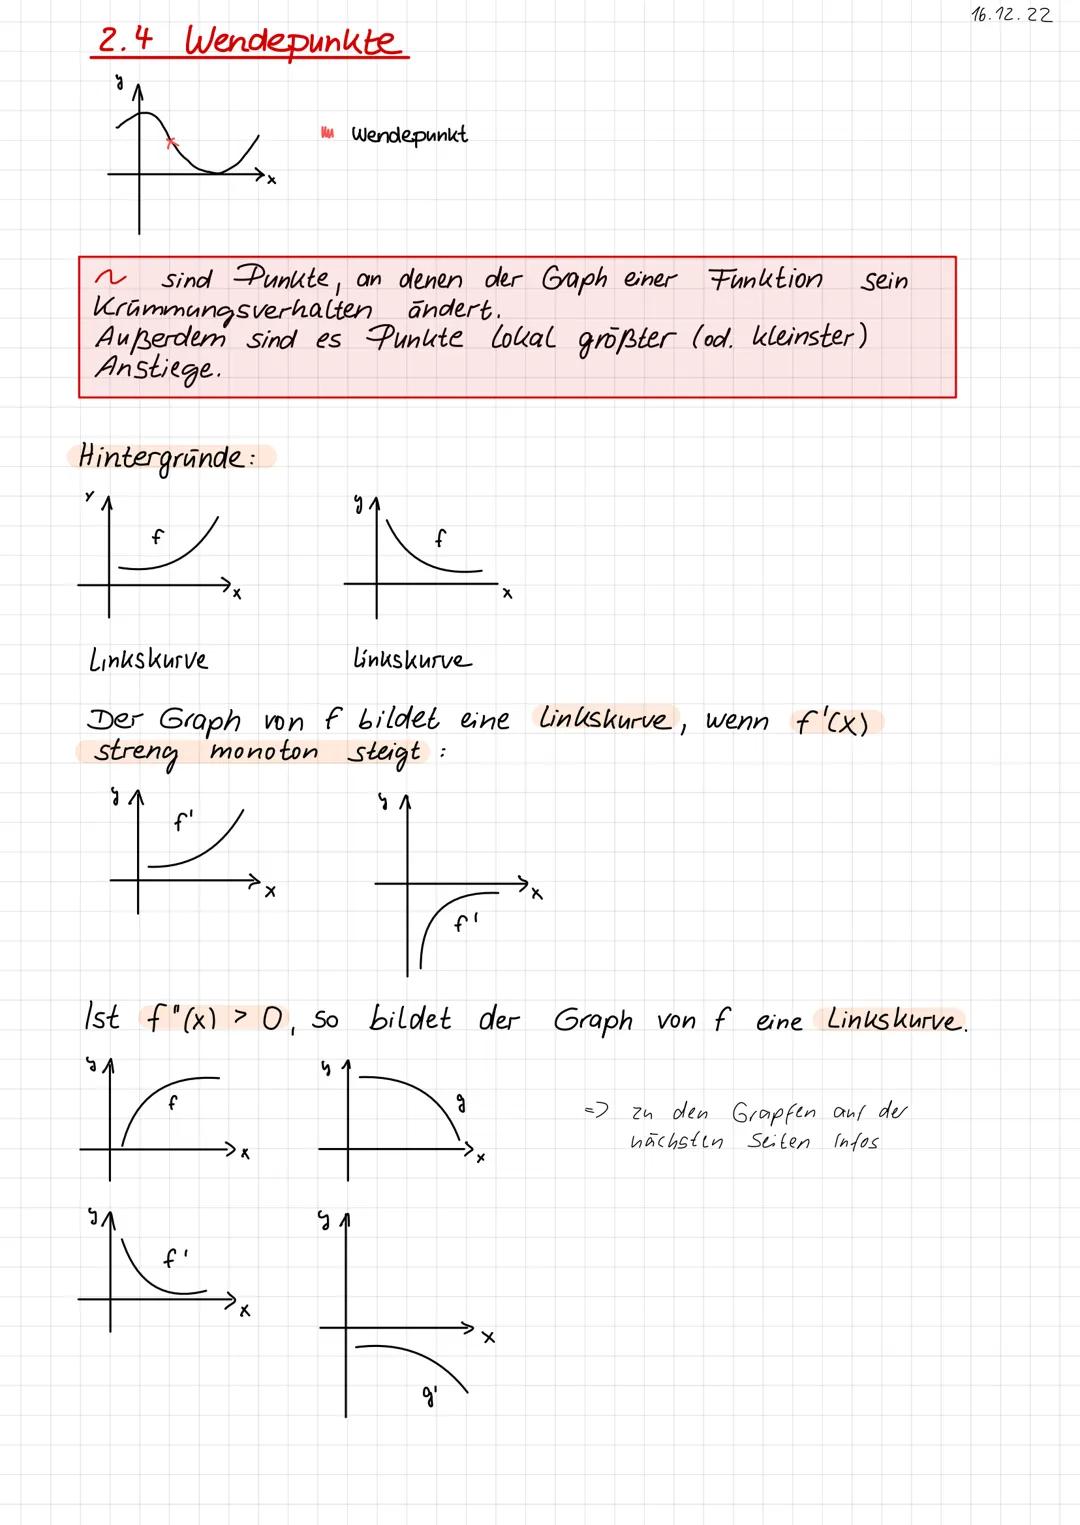 16.12.22
2.4 Wendepunkte
y
x
Wendepunkt
~ sind Punkte, an denen der Graph einer Funktion sein
Krümmungsverhalten ändert.
Außerdem sind es Punkte lokal größter (od. kleinster)
Anstiege.
Hintergründe:
y f x
y f x
Linkskurve Linkskurve
Der Graph von f bildet eine Linkskurve, wenn f'(x)
streng monoton steigt :
y f' x
y x f'
Ist f"(x) > 0, so bildet der Graph von f eine Linkskurve.
y f x
y g x
=> zu den Grapfen auf der
nächsten Seiten Infos
y f' x
y x g'